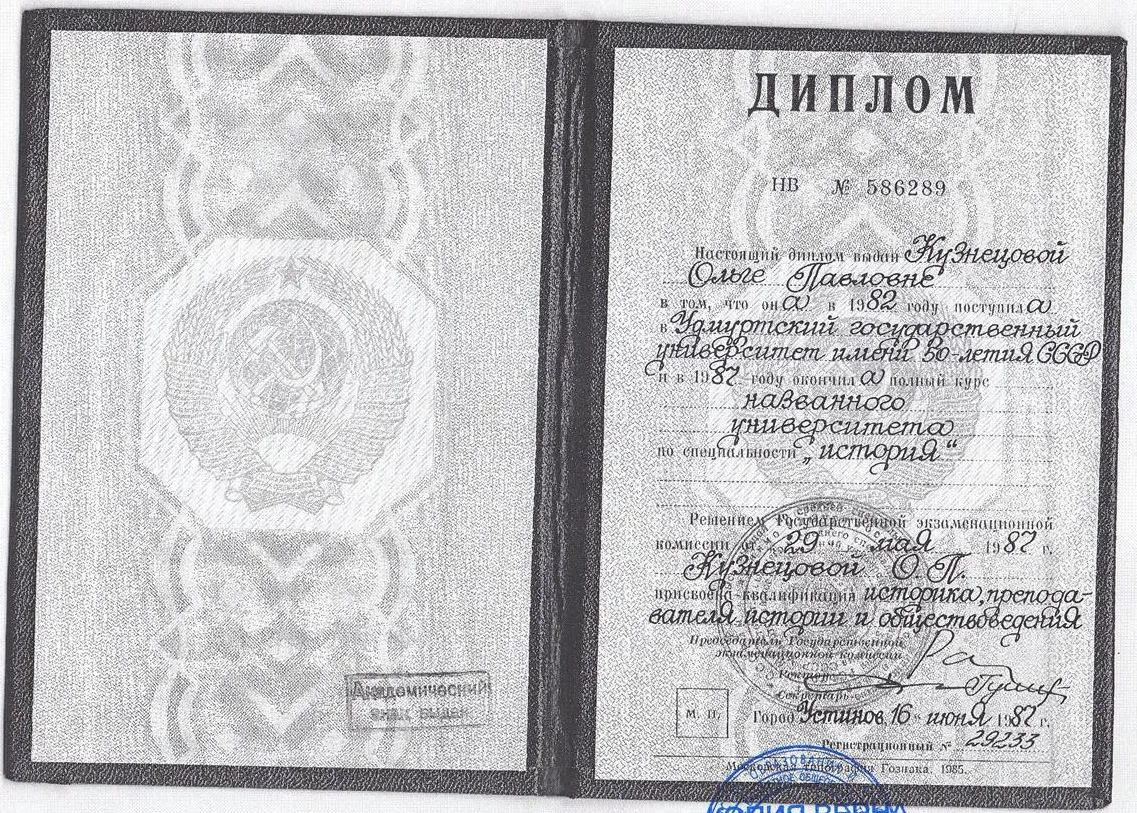 Академический
знак выдан
ДИПЛОМ
НВ № 586289
Настоящий диплом выдан Кузнецовой
Ольге Павловне
в том, что она в 1982 году поступила
в Удмуртский государственный
университет имени 50-летия СССР
и в 1987 году окончила полный курс
названного
университета
по специальности „история“
Решением Государственной экзаменационной
комиссии от 29 мая 1987 г.
Кузнецовой О. П.
присвоена квалификация историка, препода-
вателя истории и обществоведения
Председатель Государственной
экзаменационной комиссии
Ректор
Секретарь
М. П.
Город Устинов, 16 „ июня 1987 г.
Регистрационный № 29233
Московская типография Гознака. 1985.